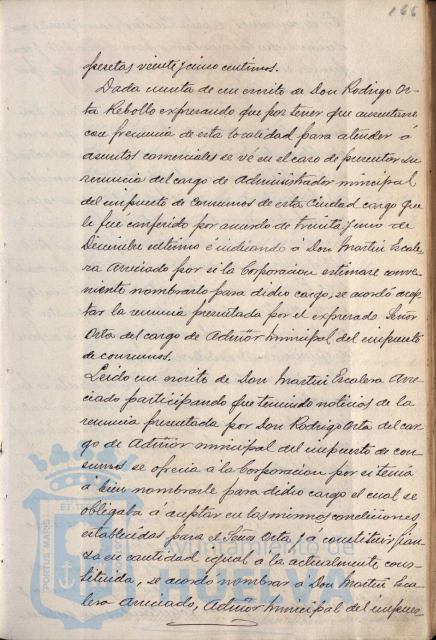 166
pesetas veinte y cinco centimos.
Dada cuenta de un escrito de Don Rodrigo Or-
ta Rebollo expresando que por tener que ausentarse
con frecuencia de esta localidad para atender á
asuntos comerciales se vé en el caso de presentar su
renuncia del cargo de Administrador municipal
del impuesto de Consumos de esta Ciudad cargo que
le fué conferido por acuerdo de treinta y uno de
Diciembre último é indicando á Don Martin Escale-
ra Anciado por si la Corporacion estimare conve-
niente nombrarlo para dicho cargo, se acordó acep-
tar la renuncia presentada por el expresado Señor
Orta del cargo de Admõr municipal del impuesto
de consumos.
Leido un escrito de Don Martin Escalera An-
ciado participando que teniendo noticias de la
renuncia presentada por Don Rodrigo Orta del car-
go de Admõr municipal del impuesto de con-
sumos se ofrecia á la Corporacion por si tenia
á bien nombrarle para dicho cargo el cual se
obligaba á aceptar en las mismas condiciones
establecidas para el Señor Orta y á constituir fian-
za en cantidad igual á la actualmente cons-
tituida, se acordó nombrar á Don Martin Esca-
lera Anciado, Admõr municipal del impues
PORTUS MARIS
Ayuntamiento de
HUELVA